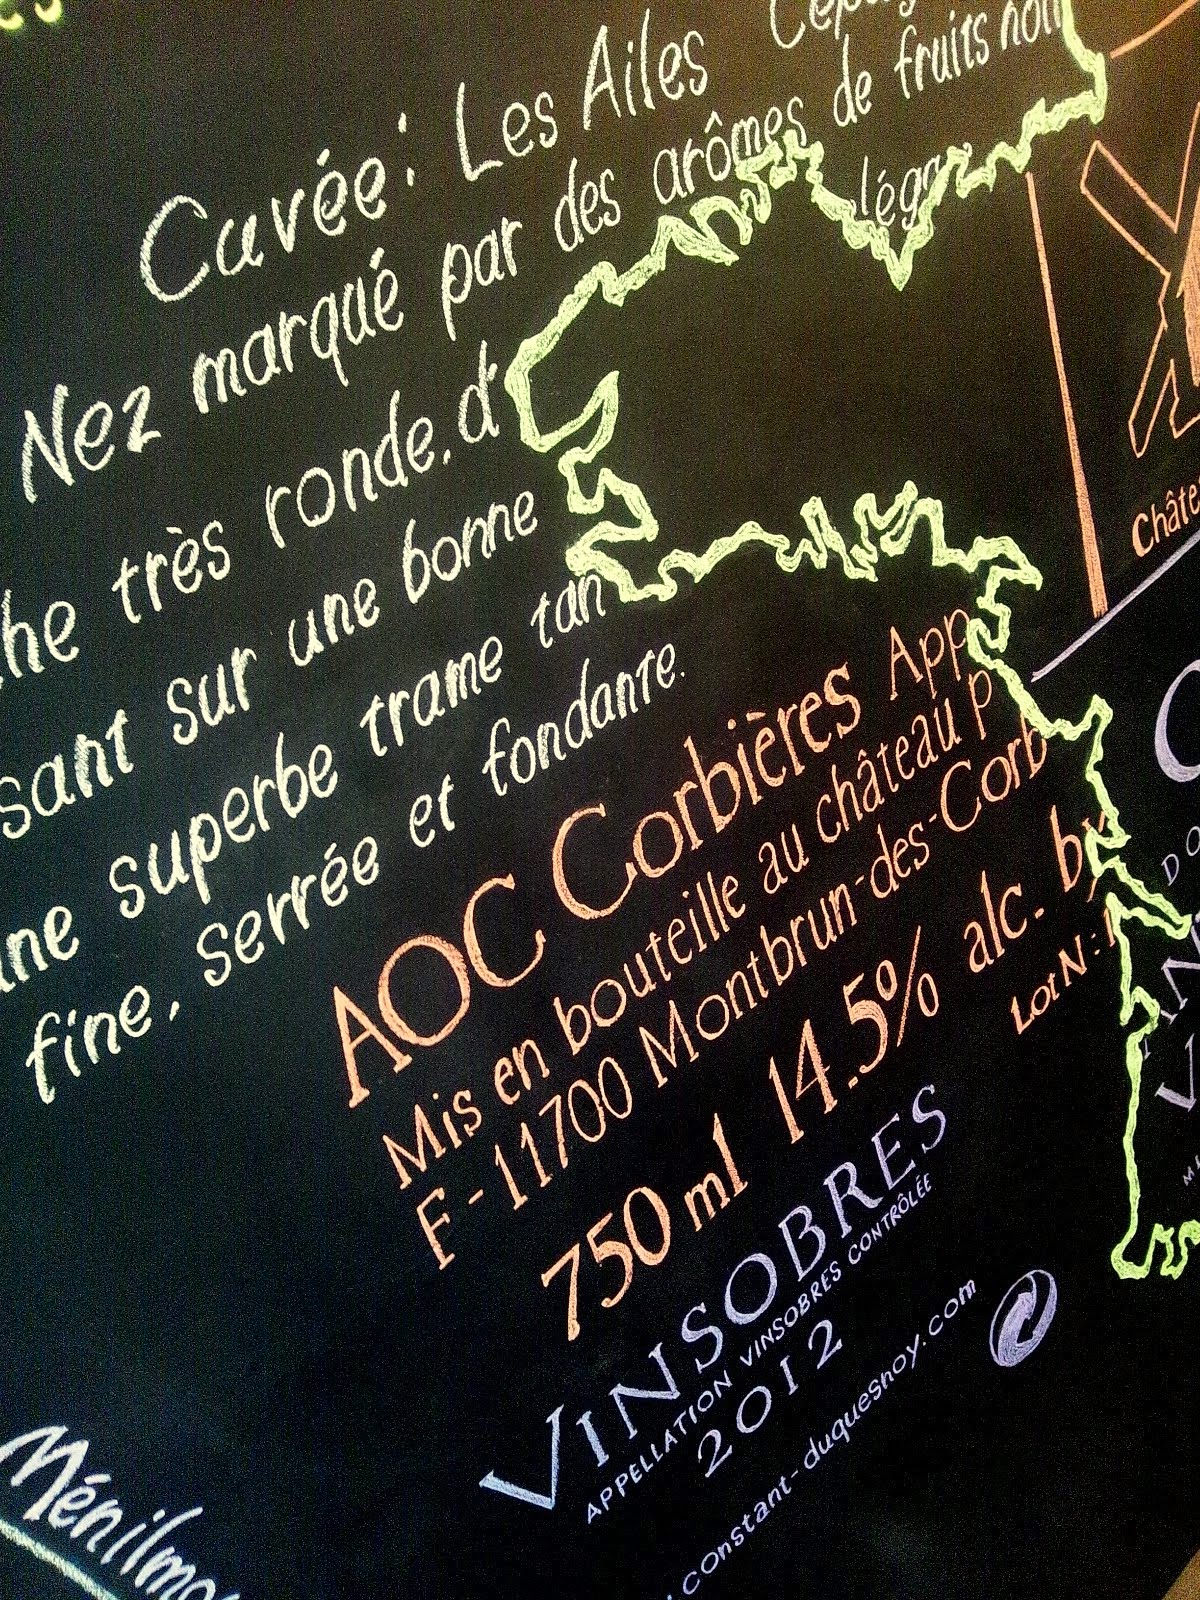 Cuvée: Les Ailes
Nez marqué par des arômes de fruits
très ronde, d'
sant sur une bonne
superbe trame tan
fine, serrée et fondante.
AOC Corbières App
Mis en bouteille au château p
F-11700 Montbrun-des-Corb
750 ml 14.5% alc. by
Lot N:
VINSOBRES
APPELLATION VINSOBRES CONTRÔLÉE
2012
constant-duquesnoy.com
Ménilmo
Châte